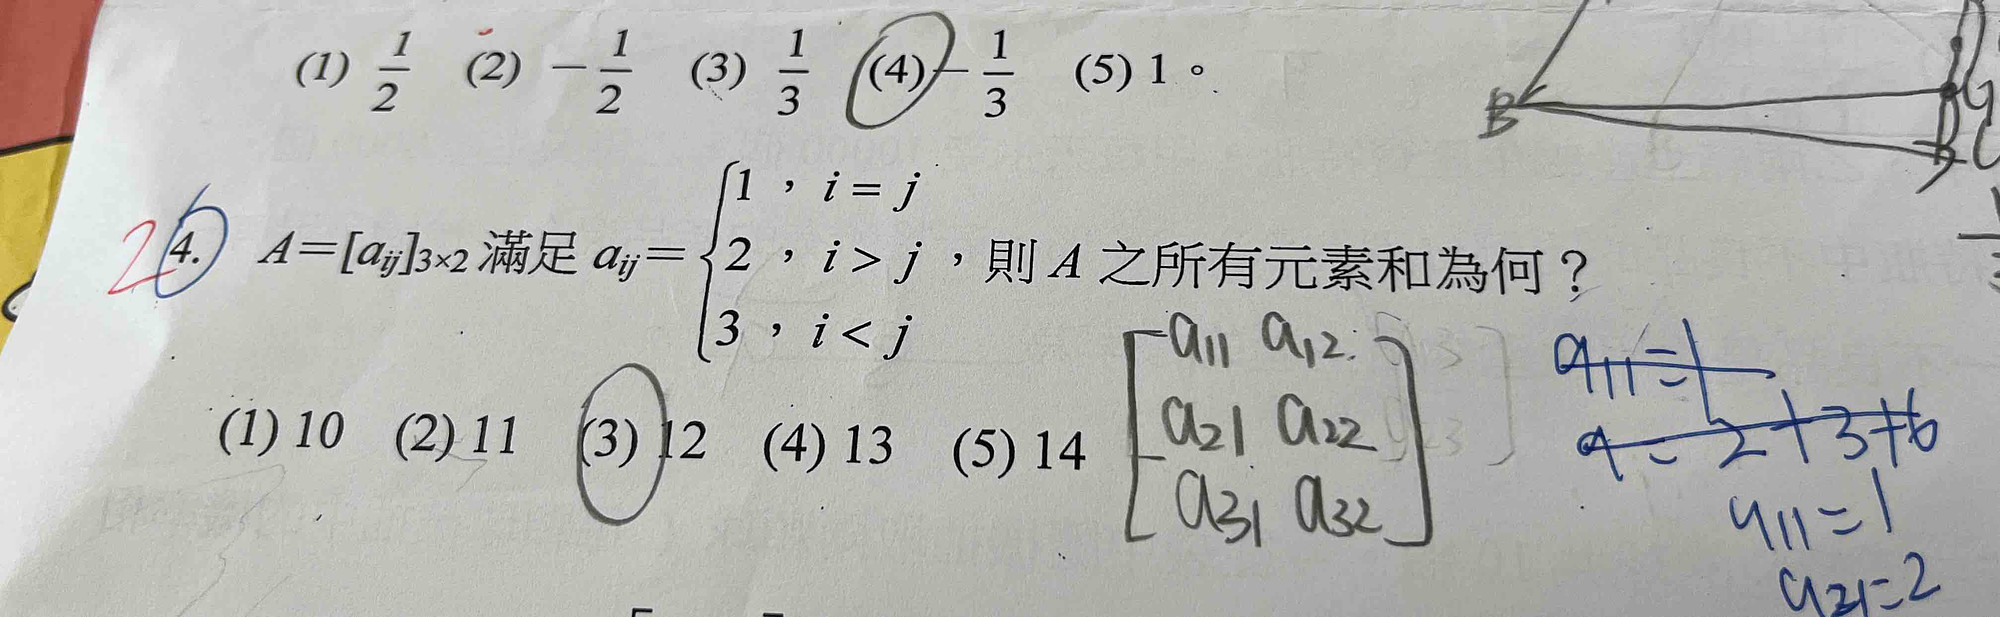 (1) 1/2 (2) −1/2 (3) 1/3 (4) −1/3 (5) 1。
B
2
4. A=[aij]3×2 滿足 aij= { 1, i = j
2, i > j ,則 A 之所有元素和為何?
3, i < j
(1) 10 (2) 11 (3) 12 (4) 13 (5) 14
a11 a12
a21 a22
a31 a32
a11=1
a = 2+3+6
a11=1
a21=2